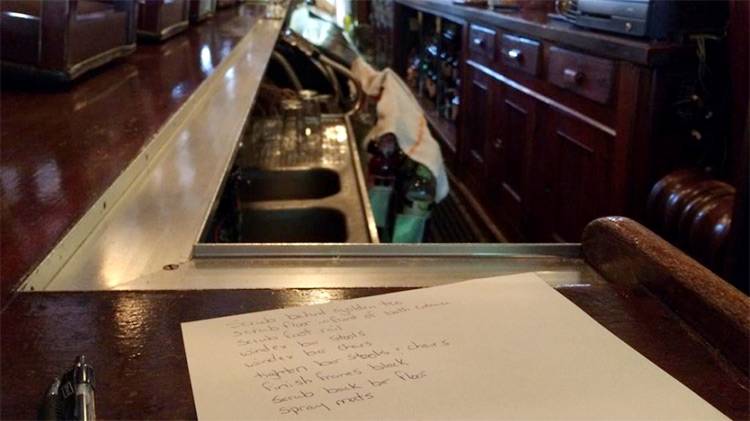 Scrub behind golden tee
Scrub floor in front of both
Scrub foot rail
windex bar stools
windex bar chairs
tighten bar stools + chairs
finish frames black
scrub back bar floor
spray mats